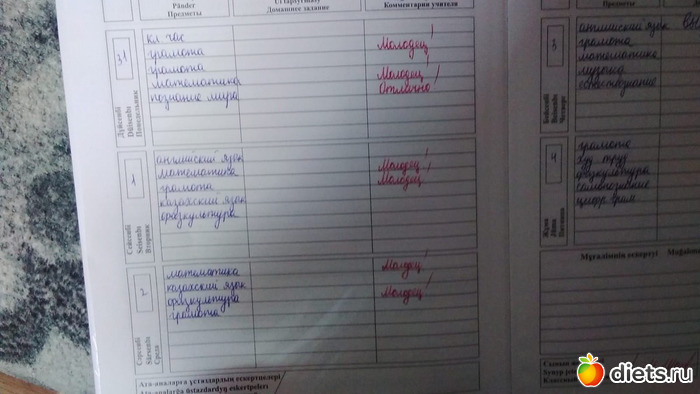 Pänder
Предметы
Домашнее задание
Комментарии учителя
31
Дүйсенбі
Dúısenbi
Понедельник
кл час
грамота
Молодец!
грамота
математика
Молодец!
познание мира
Отлично!
1
Сейсенбі
Seısenbi
Вторник
английский язык
математика
Молодец!
грамота
Молодец!
казахский язык
физкультура
2
Сәрсенбі
Sársenbi
Среда
математика
Молодец!
казахский язык
физкультура
Молодец!
грамота
Ата-аналарға ұстаздардың ескертпелері
Ata-analarǵa ustazdardyń eskertpeleri
Предметы
3
Бейсенбі
Beısenbi
Четверг
английский язык
грамота
математика
музыка
естествознание
4
Жұма
Juma
Пятница
грамота
худ труд
физкультура
самопознание
цифр. грам
Мұғалімнің ескертуі
diets.ru